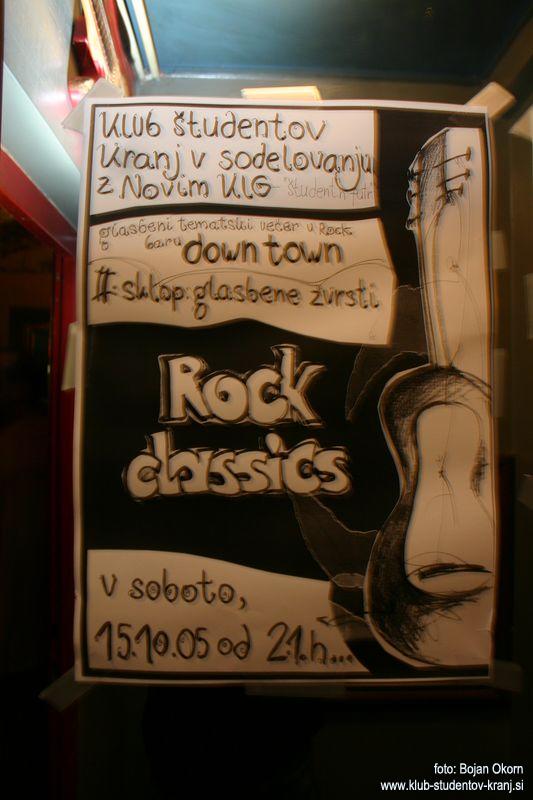 Klub študentov
Kranj v sodelovanju
z Novim KLG - "študentn futr"
glasbeni tematski večer v Rock
baru down town
II. sklop: glasbene zvrsti
Rock
classics
v soboto,
15.10.05 od 21.h...
foto: Bojan Okorn
www.klub-studentov-kranj.si